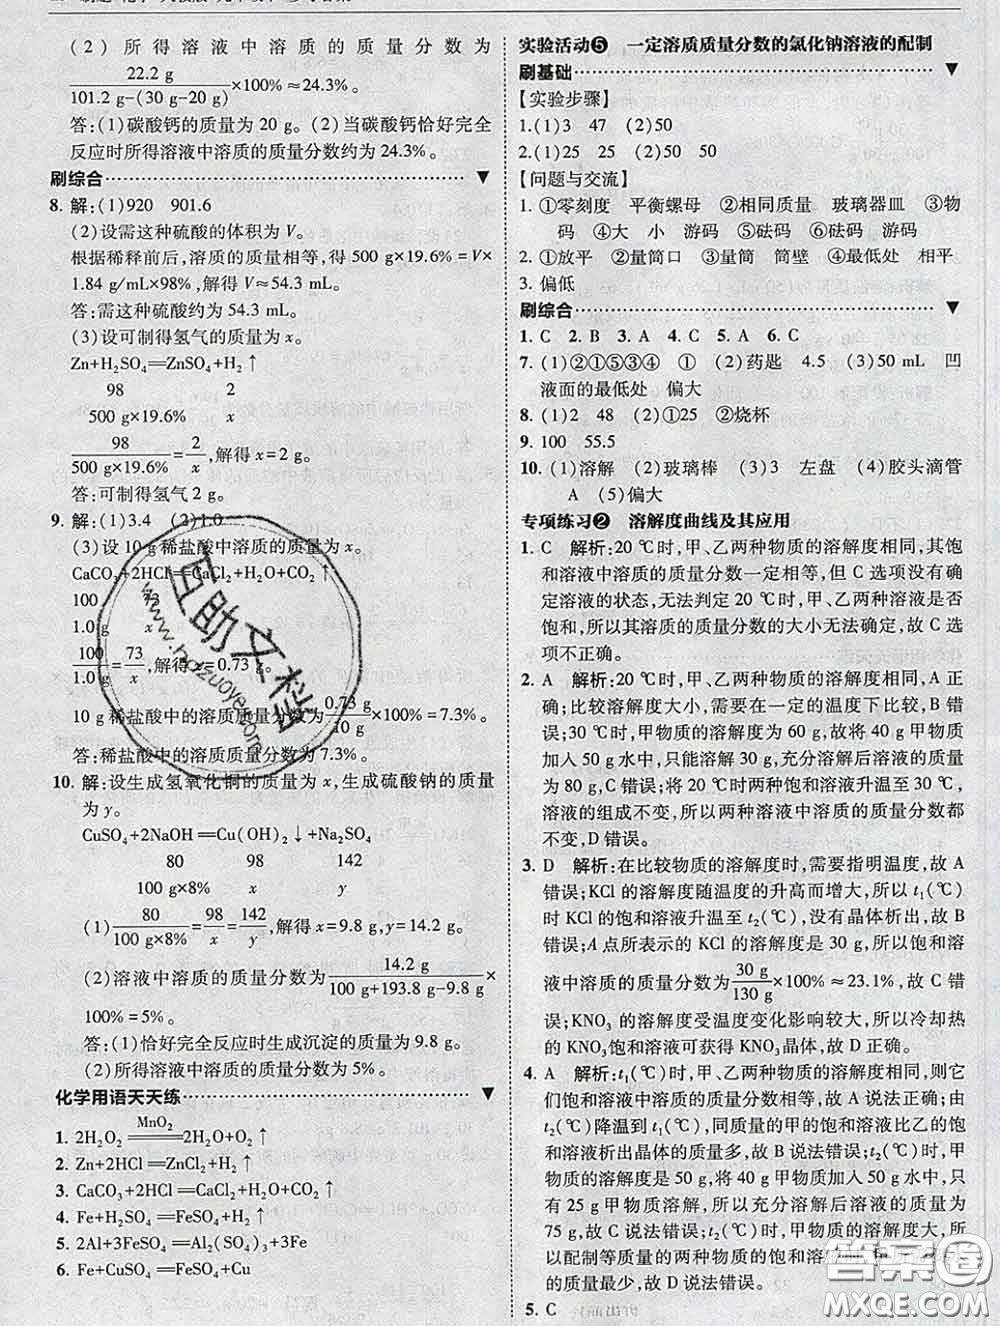 (2)所得溶液中溶质的质量分数为
22.2 g/101.2 g-(30 g-20 g)×100%≈24.3%。
答:(1)碳酸钙的质量为 20 g。(2)当碳酸钙恰好完全
反应时所得溶液中溶质的质量分数约为 24.3%。
刷综合
8. 解:(1)920 901.6
(2)设需这种硫酸的体积为 V。
根据稀释前后,溶质的质量相等,得 500 g×19.6%=V×
1.84 g/mL×98%,解得 V≈54.3 mL。
答:需这种硫酸的体积约为 54.3 mL。
(3)设可制得氢气的质量为 x。
Zn+H₂SO₄══ZnSO₄+H₂↑
98 2
500 g×19.6% x
98/500 g×19.6%=2/x,解得 x=2 g。
答:可制得氢气 2 g。
9. 解:(1)3.4 (2)1.0
(3)设 10 g 稀盐酸中溶质的质量为 x。
CaCO₃+2HCl══CaCl₂+H₂O+CO₂↑
100
1.0 g x
100/1.0 g=73/x,解得 x=0.73 g。
10 g 稀盐酸中的溶质质量分数为0.73 g/10 g×100%=7.3%。
答:稀盐酸中的溶质质量分数为 7.3%。
10. 解:设生成氢氧化铜的质量为 x,生成硫酸钠的质量
为 y。
CuSO₄+2NaOH══Cu(OH)₂↓+Na₂SO₄
80 98 142
100 g×8% x y
(1)80/100 g×8%=98/x=142/y,解得 x=9.8 g,y=14.2 g。
(2)溶液中溶质的质量分数为14.2 g/100 g+193.8 g-9.8 g×
100%=5%。
答:(1)恰好完全反应时生成沉淀的质量为 9.8 g。
(2)所得溶液中溶质的质量分数为 5%。
化学用语天天练
1. 2H₂O₂ MnO₂══2H₂O+O₂↑
2. Zn+2HCl══ZnCl₂+H₂↑
3. CaCO₃+2HCl══CaCl₂+H₂O+CO₂↑
4. Fe+H₂SO₄══FeSO₄+H₂↑
5. 2Al+3FeSO₄══Al₂(SO₄)₃+3Fe
6. Fe+CuSO₄══FeSO₄+Cu
实验活动❺ 一定溶质质量分数的氯化钠溶液的配制
刷基础
【实验步骤】
1.(1)3 47 (2)50
2.(1)25 25 (2)50 50
【问题与交流】
1. ①零刻度 平衡螺母 ②相同质量 玻璃器皿 ③物
码 ④大 小 游码 ⑤砝码 ⑥砝码 游码
2. ①放平 ②量筒口 ③量筒 筒壁 ④最低处 相平
3. 偏低
刷综合
1. C 2. B 3. A 4. C 5. A 6. C
7. (1)②①⑤③④ ① (2)药匙 4.5 (3)50 mL 凹
液面的最低处 偏大
8. (1)2 48 (2)①25 ②烧杯
9. 100 55.5
10. (1)溶解 (2)玻璃棒 (3)3 左盘 (4)胶头滴管
A (5)偏大
专项练习❷ 溶解度曲线及其应用
1. C 解析:20 ℃时,甲、乙两种物质的溶解度相同,其饱
和溶液中溶质的质量分数一定相等,但 C 选项没有确
定溶液的状态,无法判定 20 ℃时,甲、乙两种溶液是否
饱和,所以其溶质的质量分数的大小无法确定,故 C 选
项不正确。
2. A 解析:20 ℃时,甲、乙两种物质的溶解度相同,A 正
确;比较溶解度大小,需要在一定的温度下比较,B 错
误;30 ℃时,甲物质的溶解度为 60 g,故将 40 g 甲物质
加入 50 g 水中,只能溶解 30 g,充分溶解后溶液的质量
为 80 g,C 错误;将 20 ℃时两种溶液升温至 30 ℃,
溶液的组成不变,所以两种溶液中溶质的质量分数都
不变,D 错误。
3. D 解析:在比较物质的溶解度时,需要指明温度,故 A
错误;KCl 的溶解度随温度的升高而增大,所以 t₁(℃)
时 KCl 的饱和溶液升温至 t₂(℃)时,没有晶体析出,故 B
错误;A 点所表示的 KCl 的溶解度是 30 g,所以饱和溶
液中溶质的质量分数为30 g/130 g×100%≈23.1%,故 C 错
误;KNO₃ 的溶解度受温度变化影响较大,所以冷却热
的 KNO₃ 饱和溶液可获得 KNO₃ 晶体,故 D 正确。
4. A 解析:t₁(℃)时,甲、乙两种物质的溶解度相等,则它
们饱和溶液中溶质的质量分数相等,故 A 说法正确;由
t₂(℃)降温到 t₁(℃),同质量的甲的饱和溶液比乙的饱
和溶液析出晶体的质量多,故 B 说法错误;t₂(℃)时,甲
物质的溶解度是 50 g,将 40 g 甲物质加入 50 g 水中,只
有 25 g 甲物质溶解,所以充分溶解后溶液的质量为
75 g,故 C 说法错误;t₂(℃)时,甲物质的溶解度大,所
以配制等质量的两种物质的饱和溶液
的质量最少,故 D 说法错误。
5. C
互助文档
www.hdzuoye.com
答案圈
MXQE.COM